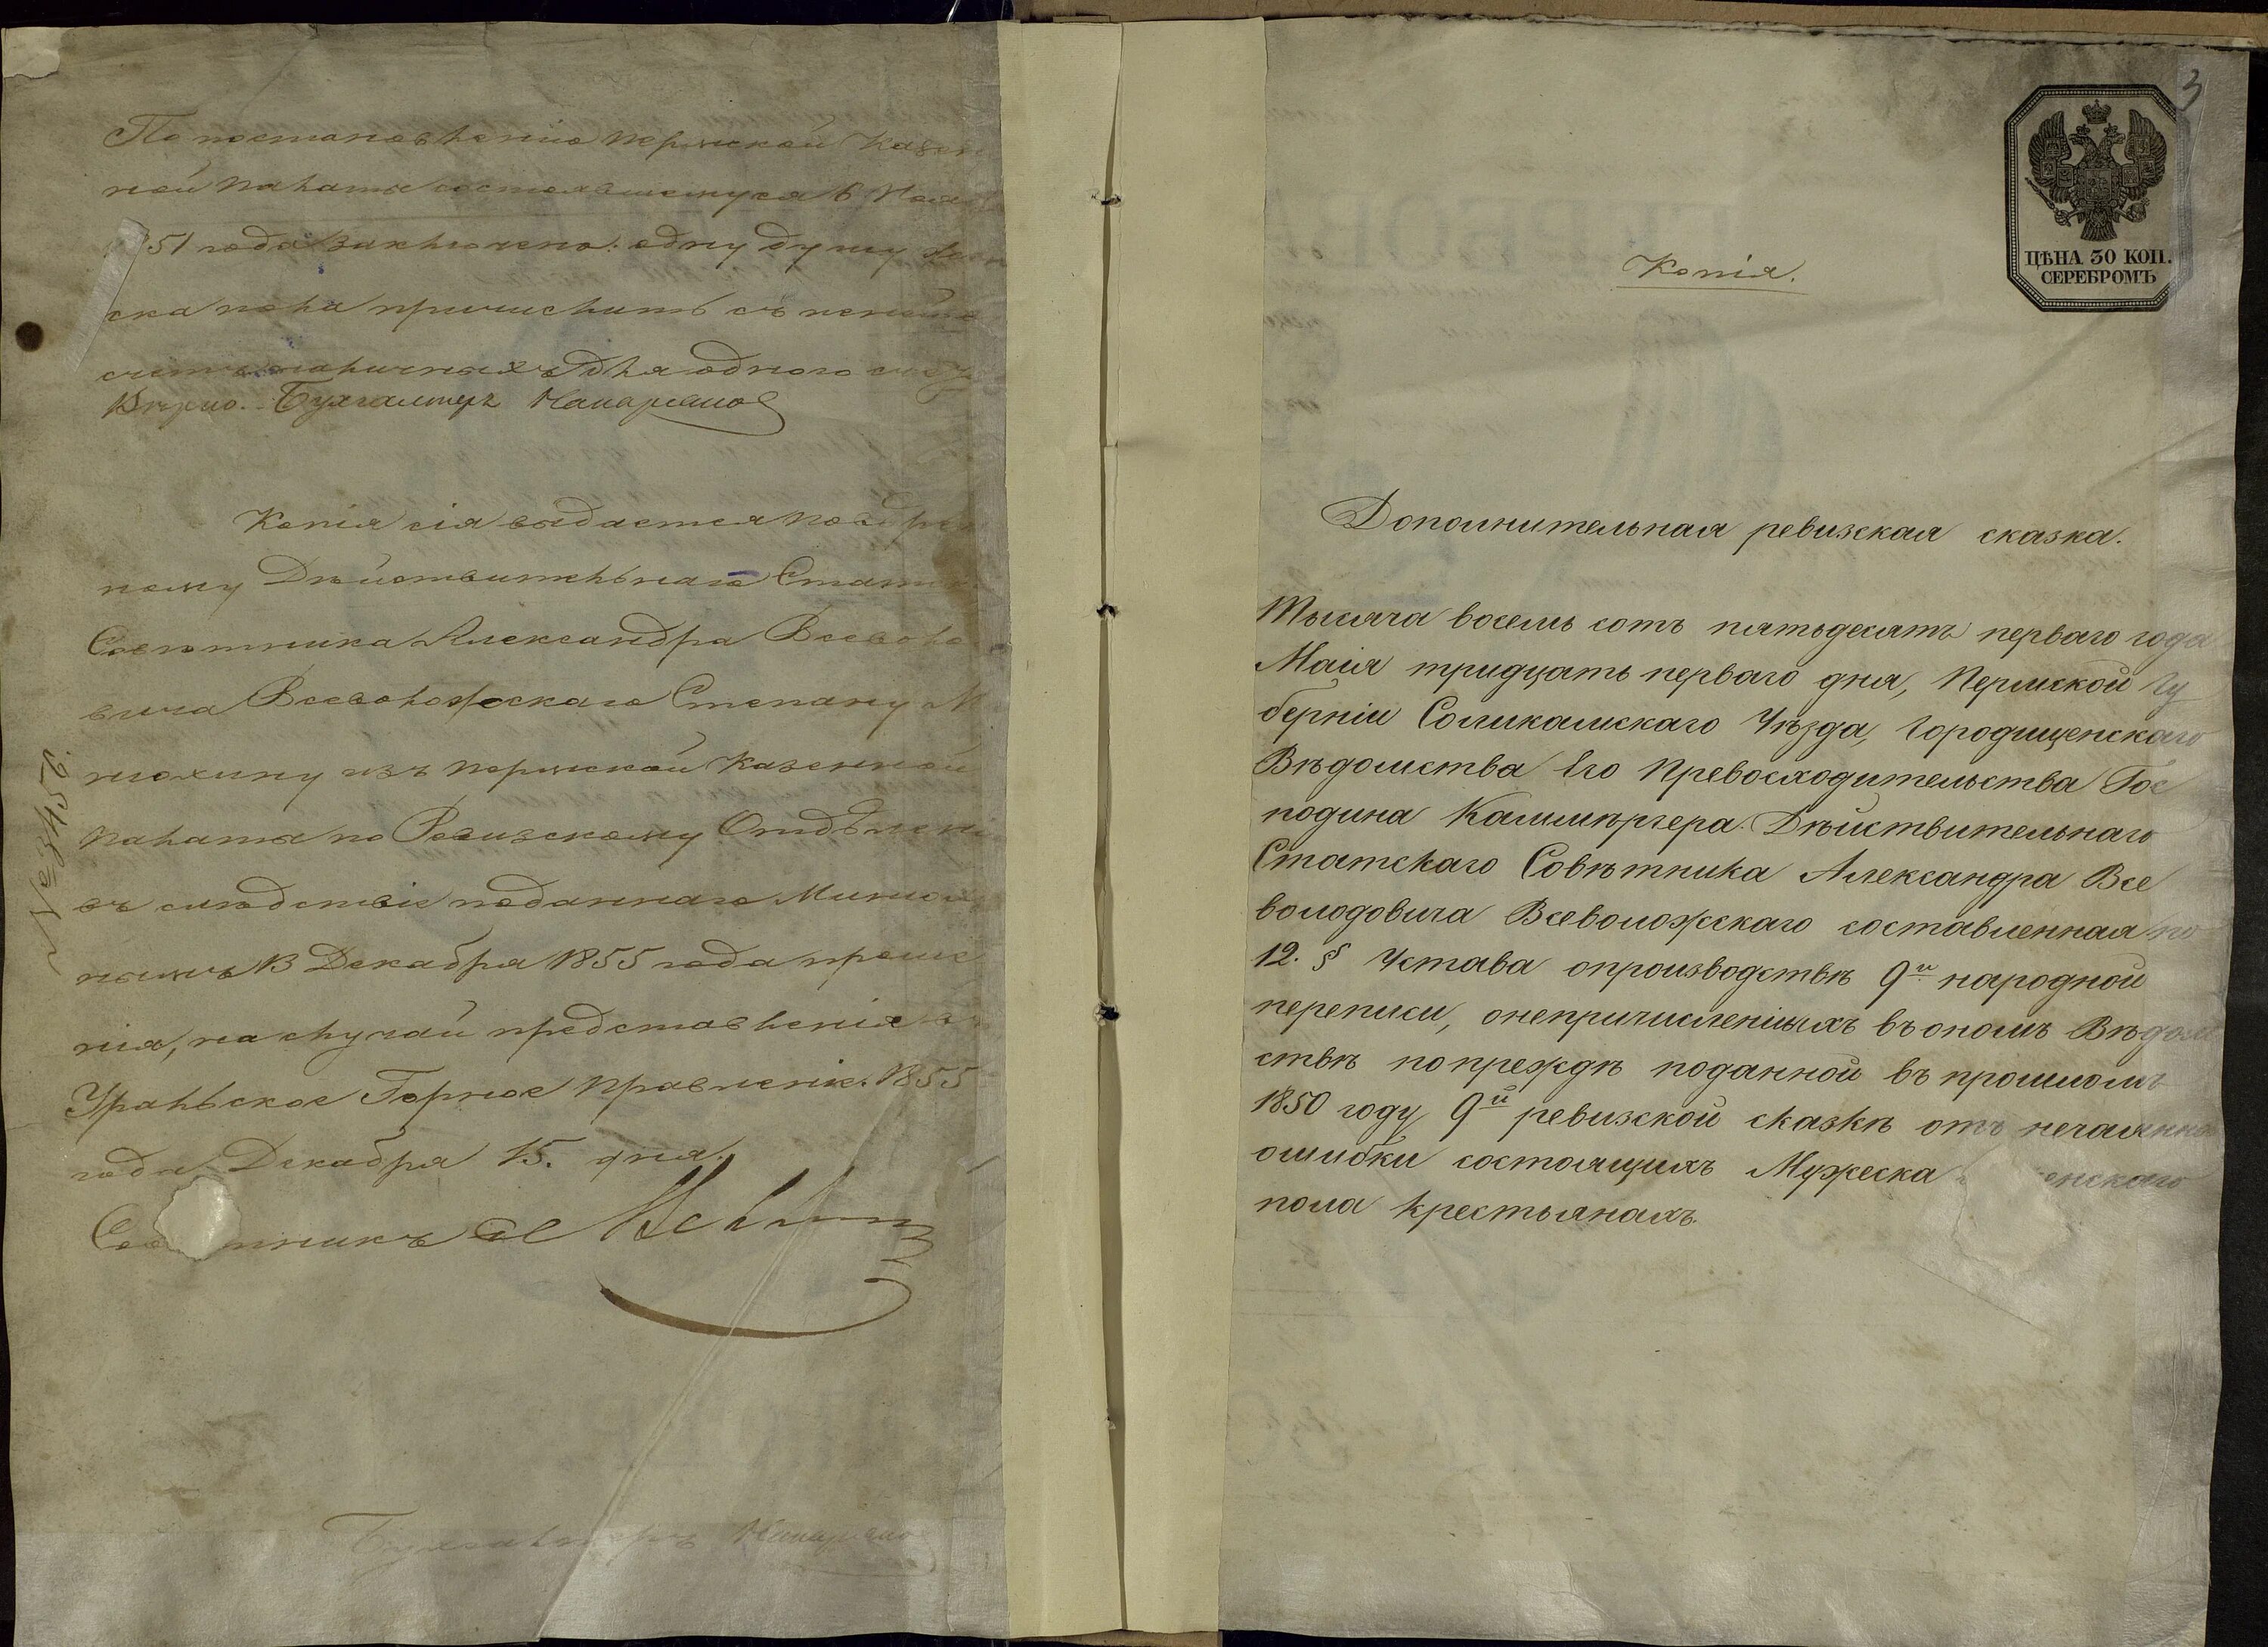 По постановленію Пермской Казен
ной Палаты состоявшемуся 6 Ноя
51 года заключено: одну душу
ска пола причислить съ
для одного
Вѣрно. Бухгалтеръ
Копія сія выдается повѣрен
ному Дѣйствительнаго Статск
Совѣтника Александра Всеволо
вича Всеволожскаго Степану М
нюхину изъ Пермской Казенной
Палаты по Ревизскому Отдѣлені
въ слѣдствіе поданнаго
13 Декабря 1855 года проше
нія, на случай представленія въ
Уральское Горное Правленіе. 1855
года Декабря 15. дня.
Со тникъ
Бухгалтеръ
№ 2542.
3
ЦѢНА 30 КОП.
СЕРЕБРОМЪ
Копія.
Дополнительная ревизская сказка.
Тысяча восемь сотъ пятьдесятъ перваго года
Маія тридцать перваго дня, Пермской Гу
берніи Соликамскаго Уѣзда, Городищенскаго
Вѣдомства Его Превосходительства Гос
подина Каммѣргера Дѣйствительнаго
Статскаго Совѣтника Александра Все
володовича Всеволожскаго составленная по
12. § Устава опроизводствѣ 9й народной
переписи, онепричисленныхъ въ ономъ Вѣдом
ствѣ попреждѣ поданной въ прошломъ
1850 году 9й ревизской сказкѣ отъ нечаянно
ошибки состоящихъ Мужеска енскаго
пола крестьянахъ.